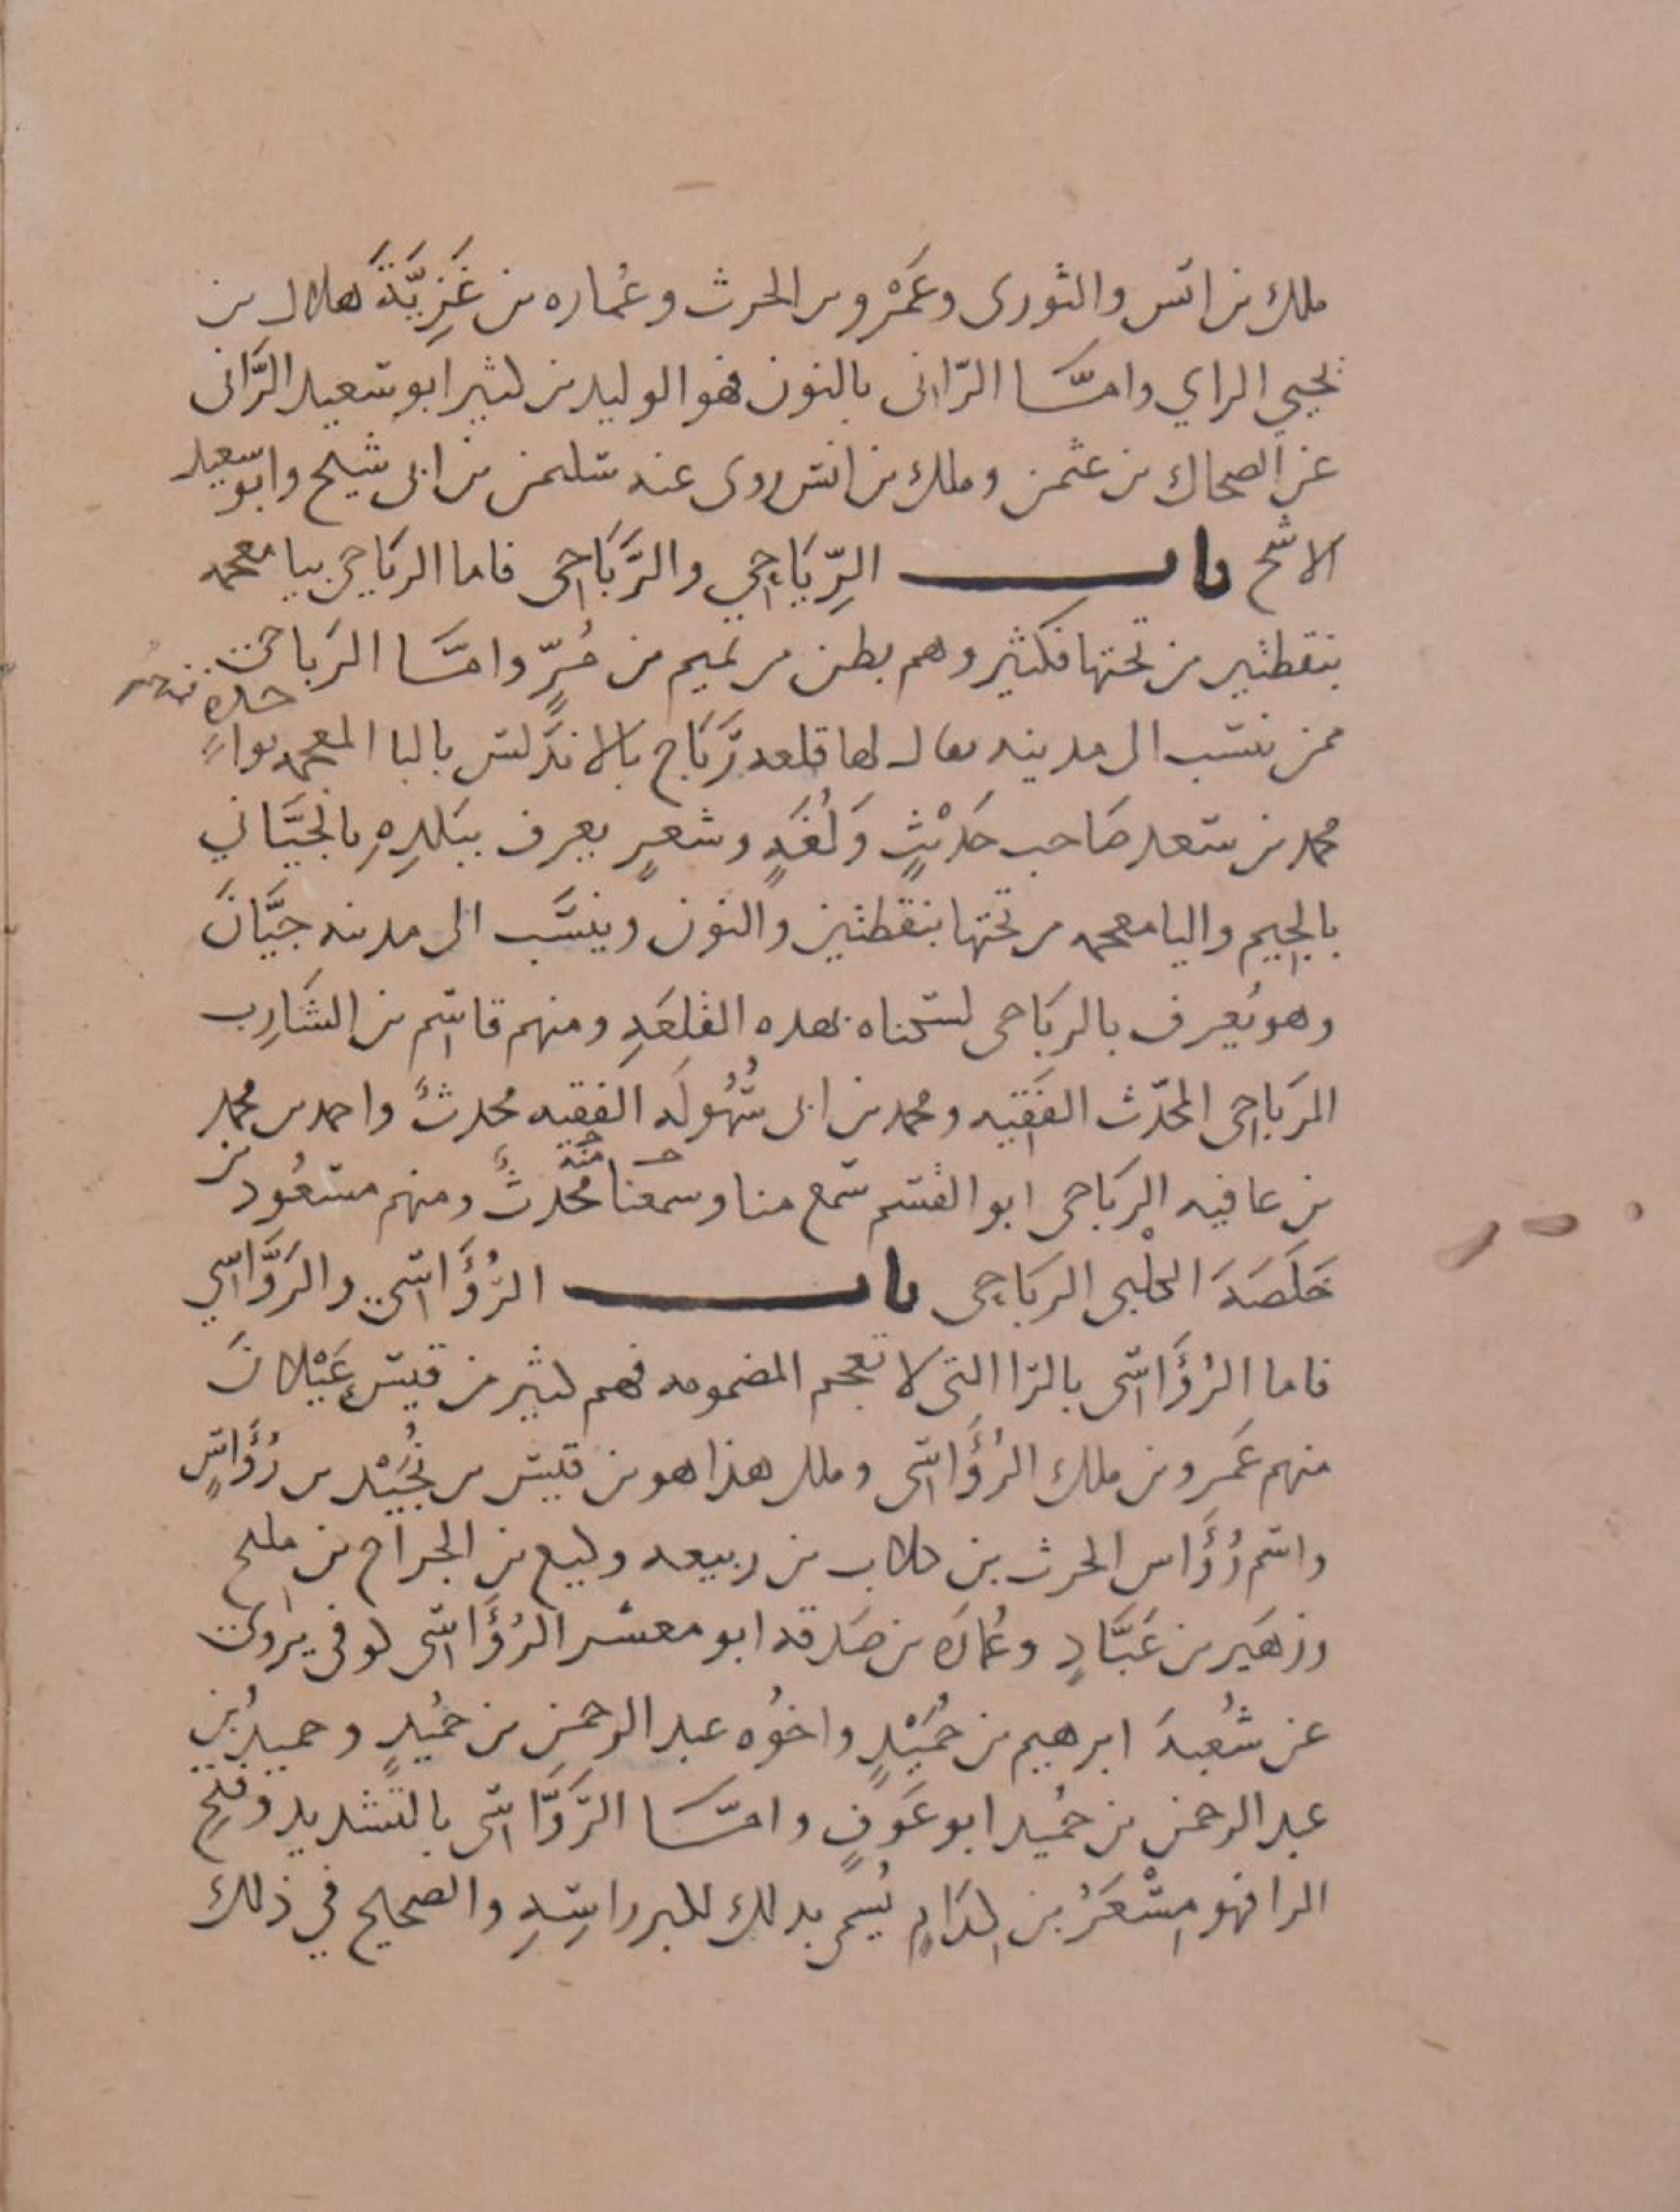 ملك بن انس والثورى وعَمْرو بن الحرث وعُماره بن غَزِيَّةَ هلال بن
يحيى الراي وامّا الرّانى بالنون فهو الوليد بن كثير ابو سعيد الرَّانى
عن الضحاك بن عثمن وملك بن انس روى عنه سليمن بن ابى شيخ وابو سعيد
الاشج باب الرِّيَاحِي والرَّبَاحِى فاما الرياحى بيا معجمه
بنقطتين من تحتها فكثير وهم بطن من تميم بن مُرٍّ وامَّا الرَباحى
ممن ينسب الى مدينه يقال لها قلعه رَبَاح بالاندَلس بالبا المعجمه بواحدهٍ
محمد بن سعد صَاحب حَدِيْثٍ وَلُغَهٍ وشعرٍ يعرف ببَلدِهِ بالجَيَّاني
بالجيم واليا معجمه من تحتها بنقطتين والنون وينسَب الى مدينه جَيَّانَ
وهو يُعرف بالرَبَاحى لسكناه بهده القلعَهِ ومنهم قاسِم بن الشَارِب
الرَبَاحِى المحَدّث الفَقيه ومحمد بن ابى سُهُولَه الفقيه محدثٌ واحمد بن محمد
بن عافيه الرَبَاحى ابو القسم سَمع منا وسمعنا مِنْهُ مُحَدثٌ ومنهم مسعُود بن
خَلَصَهَ الكلْبى الربَاحِى باب الرُؤَاسَي والرَوَّاسِي
فاما الرُؤَاسَى بالرا التى لا تعجم المضمومه فهم كثير من قيس عَيْلانَ
منهم عَمرو بن ملك الرُؤَاسَى وملك هذا هو بن قيس بن بُجَيْد بن رُؤَاسٍ
واسم رُؤَاس الحرث بن كلاب بن ربيعه وكيع بن الجراح بن مليح
وزهَير بن عَبَّادٍ وعُمَارَه بن صَدقه ابو معشر الرُؤَاسَى كوفى يروى
عن شُعبهَ ابرهيم بن حُمَيْدٍ واخوُه عبد الرحمنِ بن حُميدٍ وحميدُ بن
عبد الرحمن بن حُميد ابو عَوفٍ وامَّا الرَوَّاسَى بالتشديد وفتحِ
الرا فهو مِسْعَرُ بن كِدَامٍ يُسمى بدلك لكبر راسِهِ والصحيح في ذلك